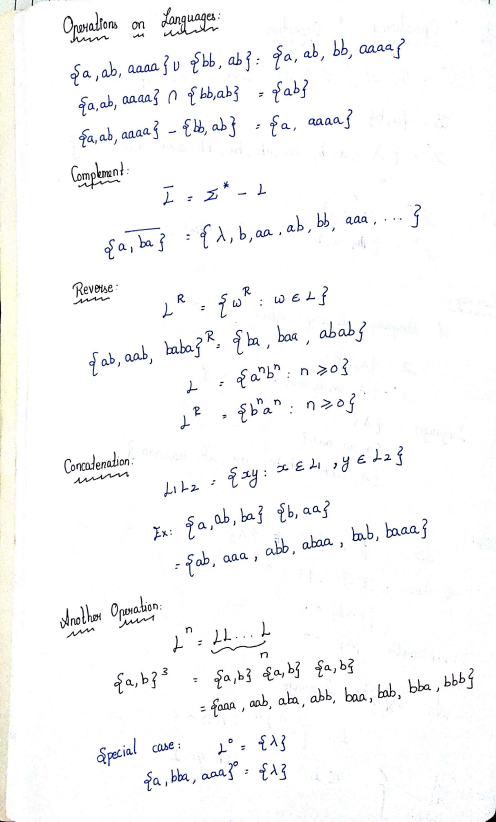 Operations on Languages:
{a, ab, aaaa} ∪ {bb, ab} : {a, ab, bb, aaaa}
{a,ab, aaaa} ∩ {bb,ab} = {ab}
{a,ab, aaaa} - {bb, ab} = {a, aaaa}
Complement:
L̅ = Σ* - L
{a̅,̅ ̅b̅a̅} = {λ, b, aa, ab, bb, aaa, ...}
Reverse:
Lᴿ = {ωᴿ : ω ∈ L}
{ab, aab, baba}ᴿ = {ba, baa, abab}
L = {aⁿbⁿ : n ≥ 0}
Lᴿ = {bⁿaⁿ : n ≥ 0}
Concatenation:
L₁L₂ = {xy : x ∈ L₁, y ∈ L₂}
Ex: {a, ab, ba} {b, aa}
= {ab, aaa, abb, abaa, bab, baaa}
Another Operation:
Lⁿ = LL...L
n
{a,b}³ = {a,b} {a,b} {a,b}
= {aaa, aab, aba, abb, baa, bab, bba, bbb}
Special case: L⁰ = {λ}
{a, bba, aaa}⁰ = {λ}